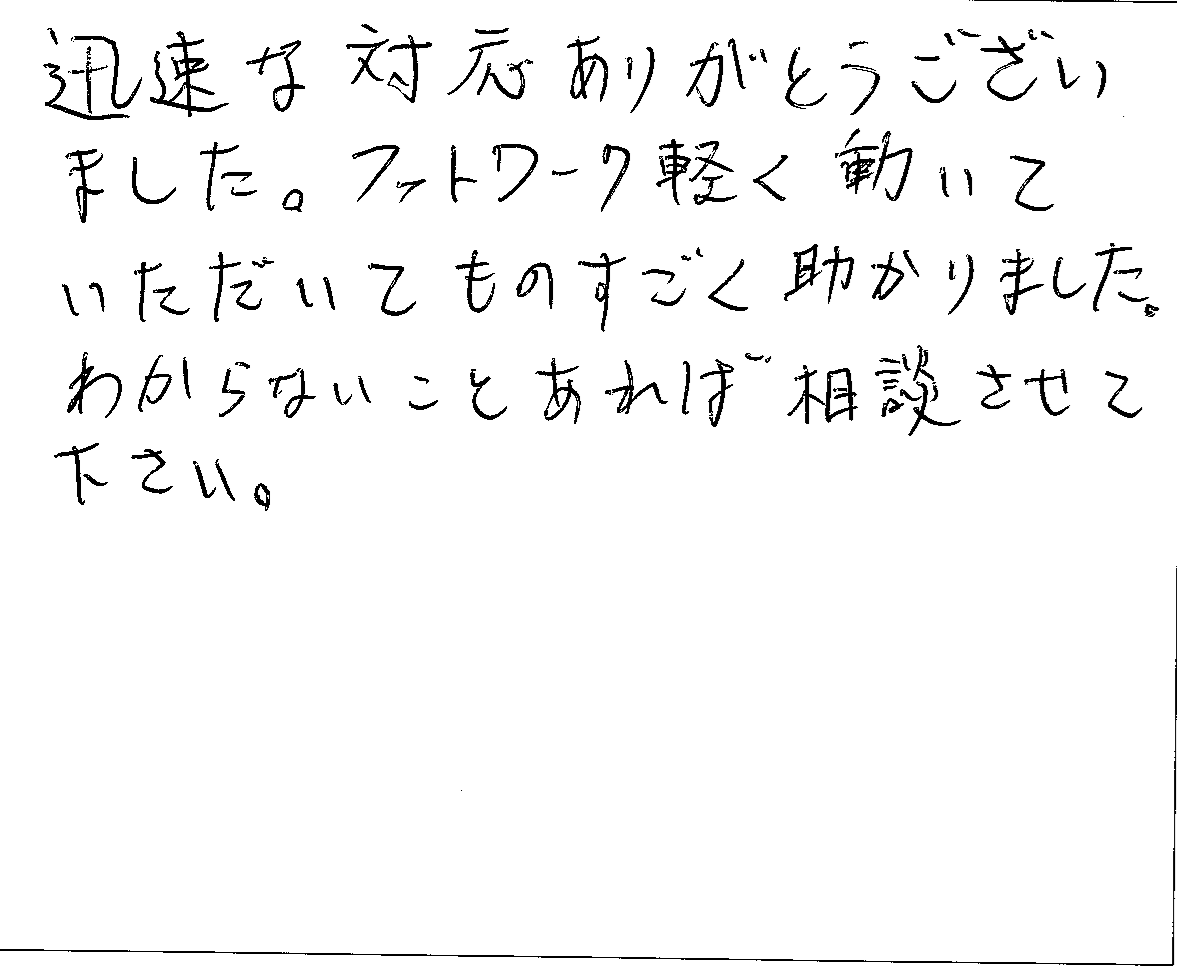 迅速な対応ありがとうござい
ました。フットワーク軽く動いて
いただいてものすごく助かりました。
わからないことあれば相談させて
下さい。